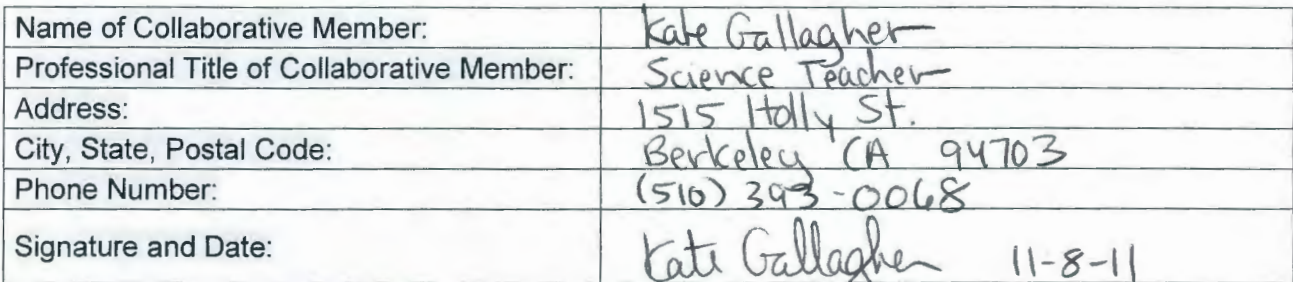 Name of Collaborative Member: Kate Gallagher
Professional Title of Collaborative Member: Science Teacher
Address: 1515 Holly St.
City, State, Postal Code: Berkeley CA 94703
Phone Number: (510) 393-0068
Signature and Date: Kate Gallagher 11-8-11